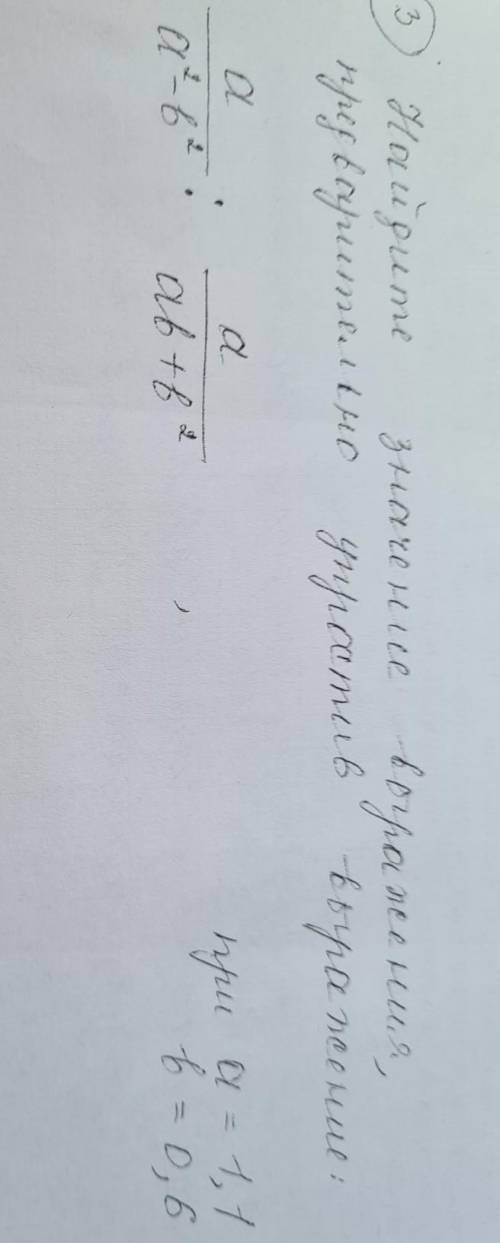 3) Найдите значение выражения,
предварительно упростив выражение:
a/(a²-b²) : a/(ab+b²) , при a=1,1
b=0,6